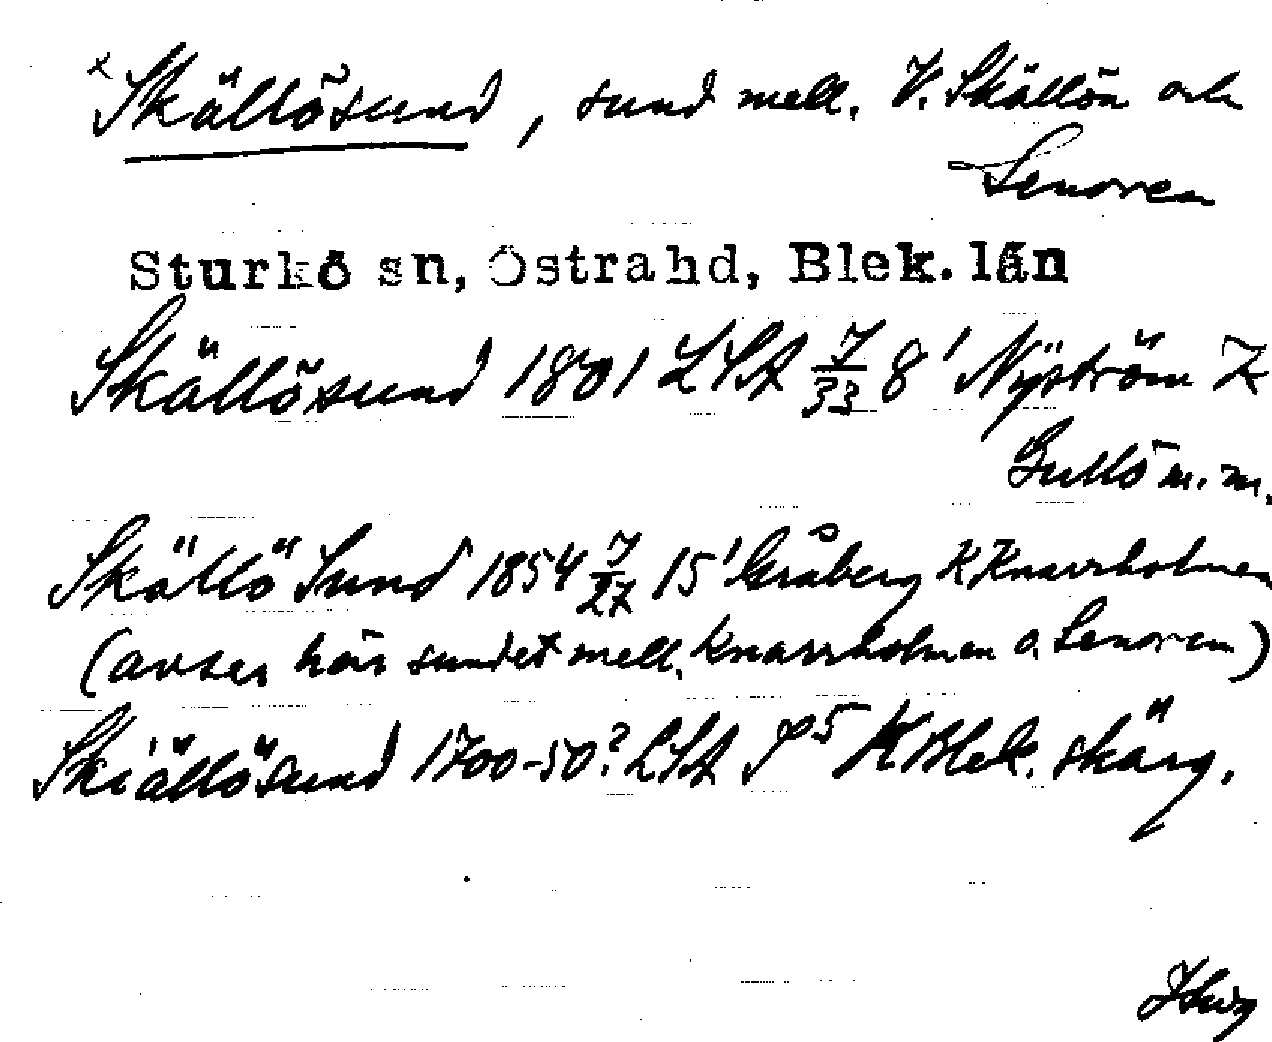 x Skällösund, sund mell. V. Skällön och
Senoren
Sturkö sn, Östra hd, Blek. län
Skällösund 1801 LSA 7/33 8' Nyström K
Gullö m. m.
Skällö Sund 1854 7/27 15' Gråberg K Knarrholmen
(avser här sundet mell. Knarrholmen o. Senoren)
Skiällösund 1700-50? LSA K Blek. skärg.